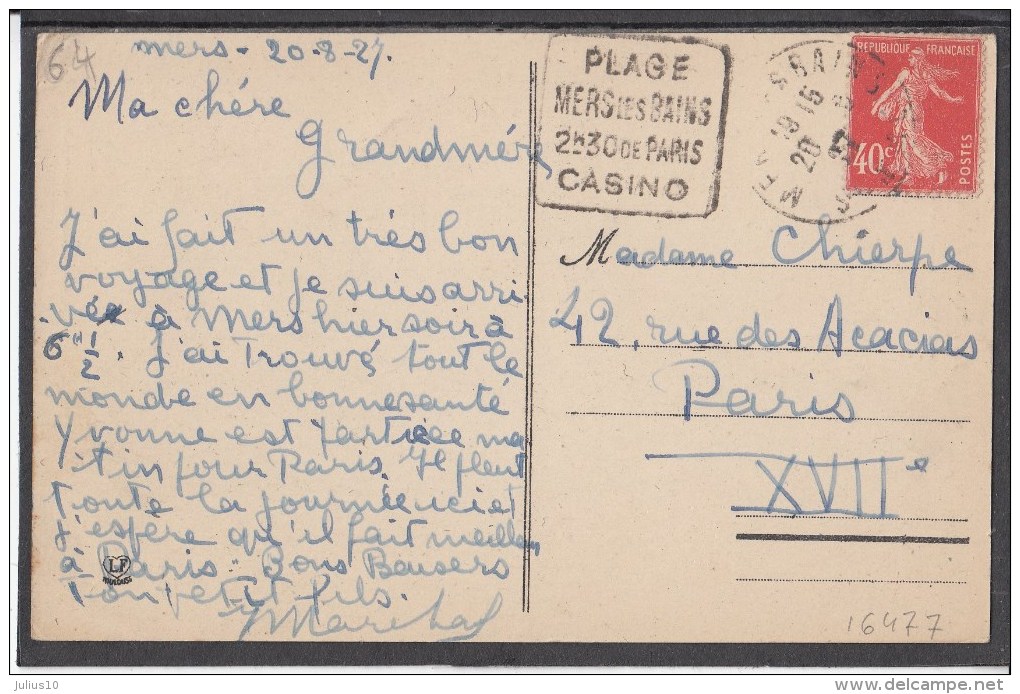 64
Mers - 20-8-27.
Ma chére
Grandmére
J'ai fait un trés bon
voyage et je suis arri-
vée à Mers hier soir à
6H 1/2. J'ai trouvé tout le
monde en bonne santé
Yvonne est partiée ma
tin pour Paris. Il pleut
toute la journée ici et
j'espére qu'il fait meilleur
à Paris. Bons Baisers
Ton petit fils.
LF
TOULOUSE
PLAGE
MERS LES BAINS
2h30 DE PARIS
CASINO
19 15
20
REPUBLIQUE FRANÇAISE
40c
POSTES
Madame Chierpe
42, rue des Acacias
Paris
XVIIe
16477
julius10
delcampe.net